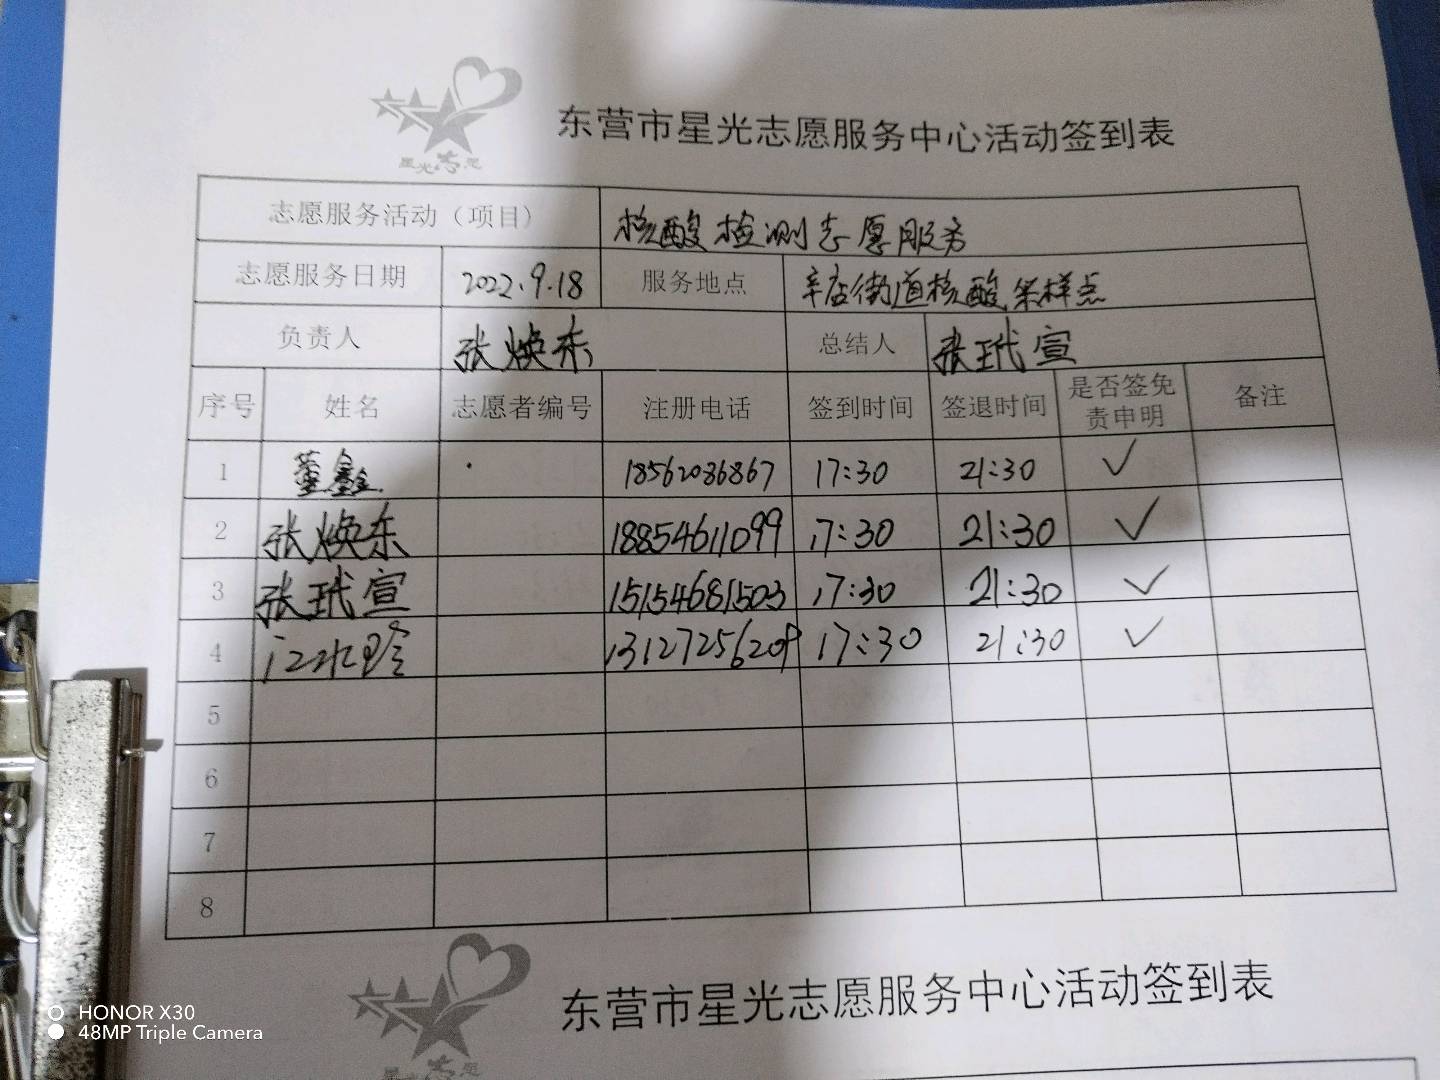 星光志愿
东营市星光志愿服务中心活动签到表
志愿服务活动（项目） 核酸检测志愿服务
志愿服务日期 2022.9.18 服务地点 辛店街道核酸采样点
负责人 张焕东 总结人 张玳宣
序号 姓名 志愿者编号 注册电话 签到时间 签退时间 是否签免责申明 备注
1 董鑫 18562036867 17:30 21:30 ✓
2 张焕东 18854611099 17:30 21:30 ✓
3 张玳宣 15154681503 17:30 21:30 ✓
4 13127256209 17:30 21:30 ✓
5
6
7
8
东营市星光志愿服务中心活动签到表
HONOR X30
48MP Triple Camera